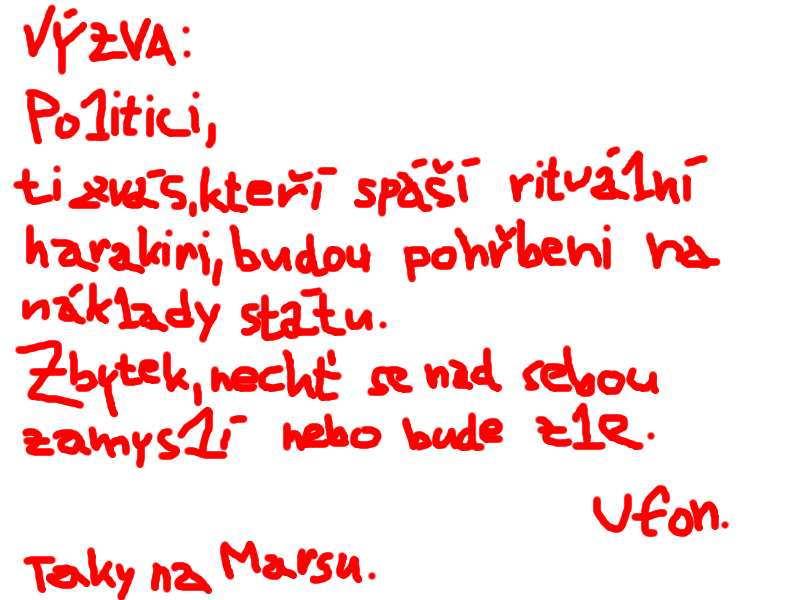 VÝZVA:
Politici,
ti z vás, kteří spáší rituální
harakiri, budou pohřbeni na
náklady státu.
Zbytek, nechť se nad sebou
zamyslí nebo bude zle.
Ufon.
Taky na Marsu.